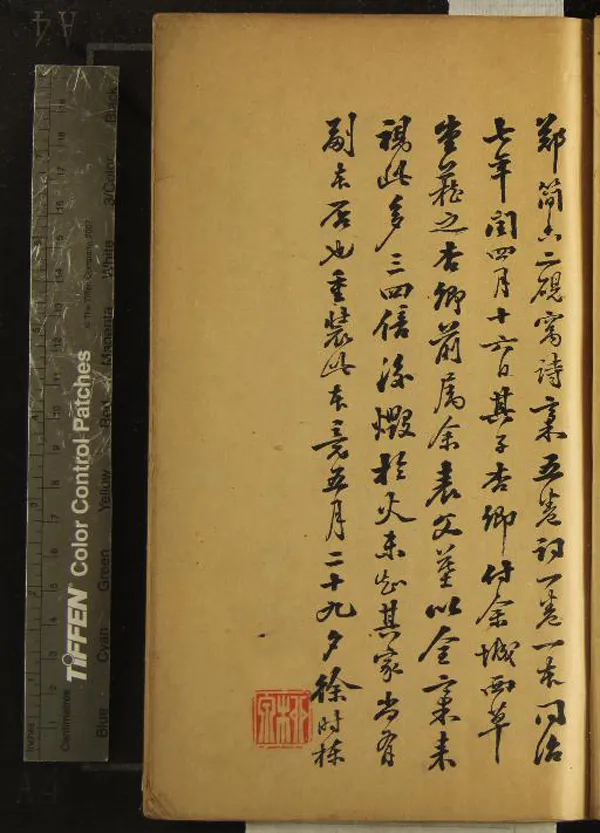 鄭簡香二硯窩詩稾五卷詞一卷一本同治
七年閏四月十六日其子杏卿付余城西草
堂藏之杏卿前屬余表父墓以全稾來
視此多三四倍後燬於火未知其家尚有
副本否也重裝此本竟五月二十九夕徐時棟
柳泉
TIFFEN Color Control Patches
© The Tiffen Company, 2007
Inches
Centimetres
Blue Cyan Green Yellow Red Magenta White 3/Color Black